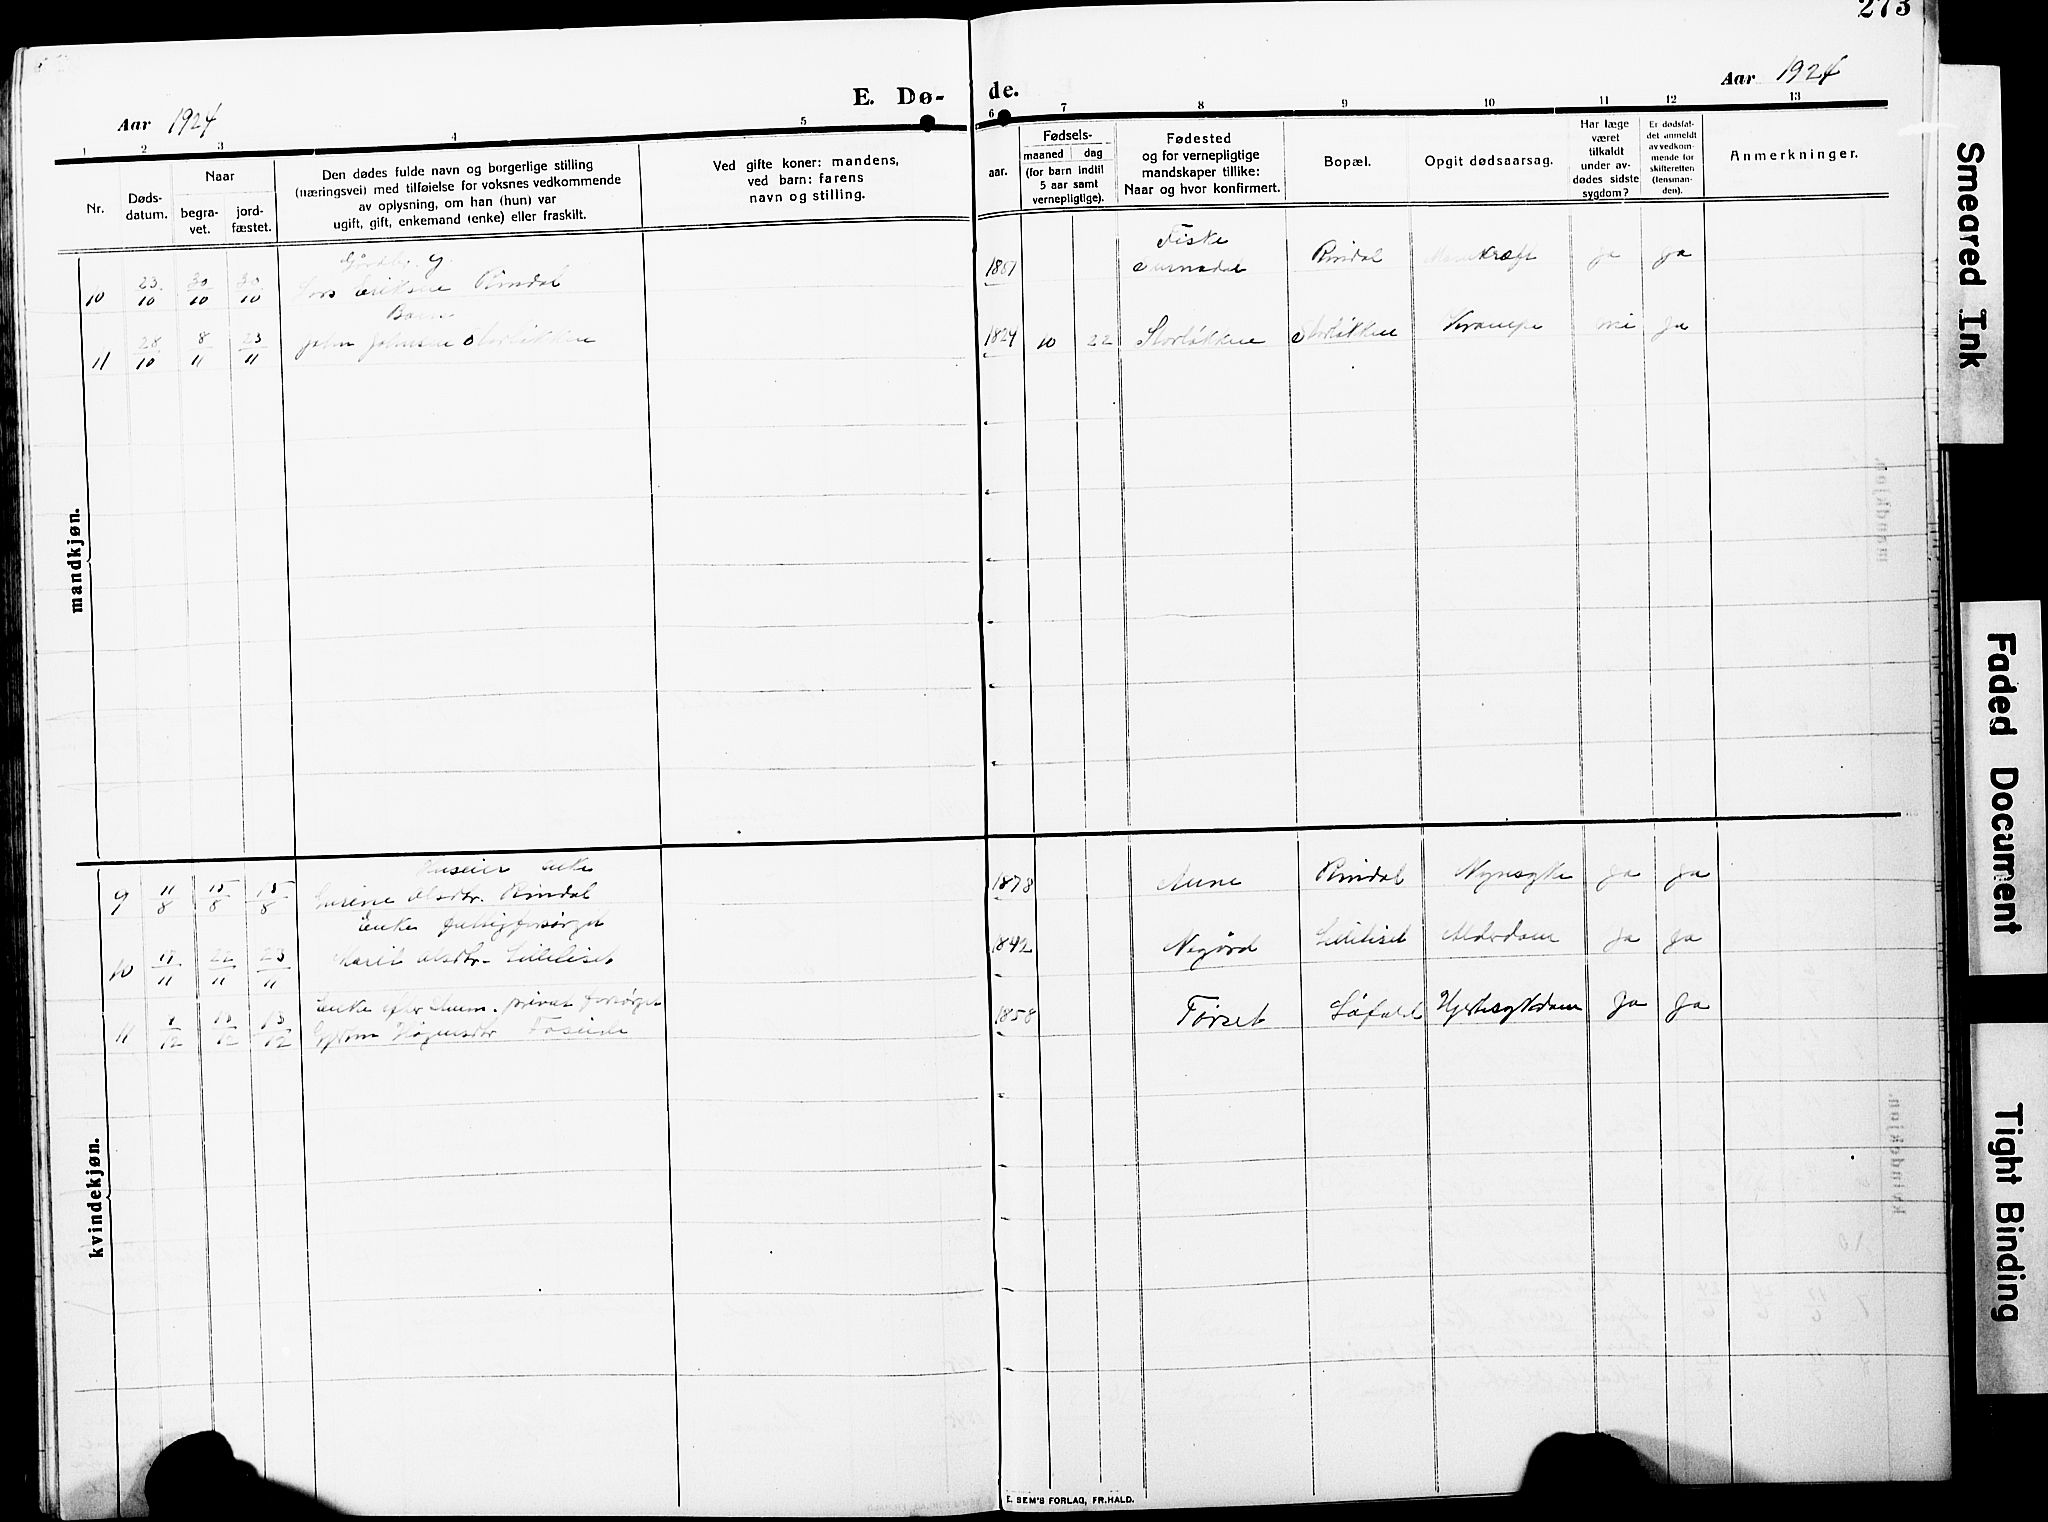 273
Aar 1924
E. Dø-
de.
Aar 1924
1 2 3 4 5 6 7 8 9 10 11 12 13
Nr.
Døds-
datum.
Naar
begra-
vet.
jord-
fæstet.
Den dødes fulde navn og borgerlige stilling
(næringsvei) med tilføielse for voksnes vedkommende
av oplysning, om han (hun) var
ugift, gift, enkemand (enke) eller fraskilt.
Ved gifte koner: mandens,
ved barn: farens
navn og stilling.
aar.
Fødsels-
maaned dag
(for barn indtil
5 aar samt
vernepligtige).
Fødested
og for vernepligtige
mandskaper tillike:
Naar og hvor konfirmert.
Bopæl.
Opgit dødsaarsag.
Har læge
været
tilkaldt
under av-
dødes sidste
sygdom?
Er dødsfal-
det anmeldt
av vedkom-
mende for
skifteretten
(lensman-
den).
Anmerkninger.
mandkjøn.
Gårdbr. g.
10 23/10 30/10 30/10 Lars Eriksen Rindal
Fiske
Surnadal Rindal ja ja
Barn
11 28/10 8/11 23/11 John Johnsen Storløkken
1924 10 22 Storløkken Storløkken Krampe nei ja
kvindekjøn.
Huseier enke
9 11/8 15/8 15/8 Olsdtr. Rindal
1878 Aune Rindal Nyresyke Ja Ja
Enke fattigforsørget
10 22/11 23/11 Marit Olsdtr. Lilleliset
1842 Negård Lilleliset Alderdom Ja Ja
Enke efter privat forsørget
11 13/12 13/12
1858 Tørset Løfald Hjertesykdom Ja Ja
E. SEM'S FORLAG, FR.HALD.
Smeared Ink
Faded Document
Tight Binding